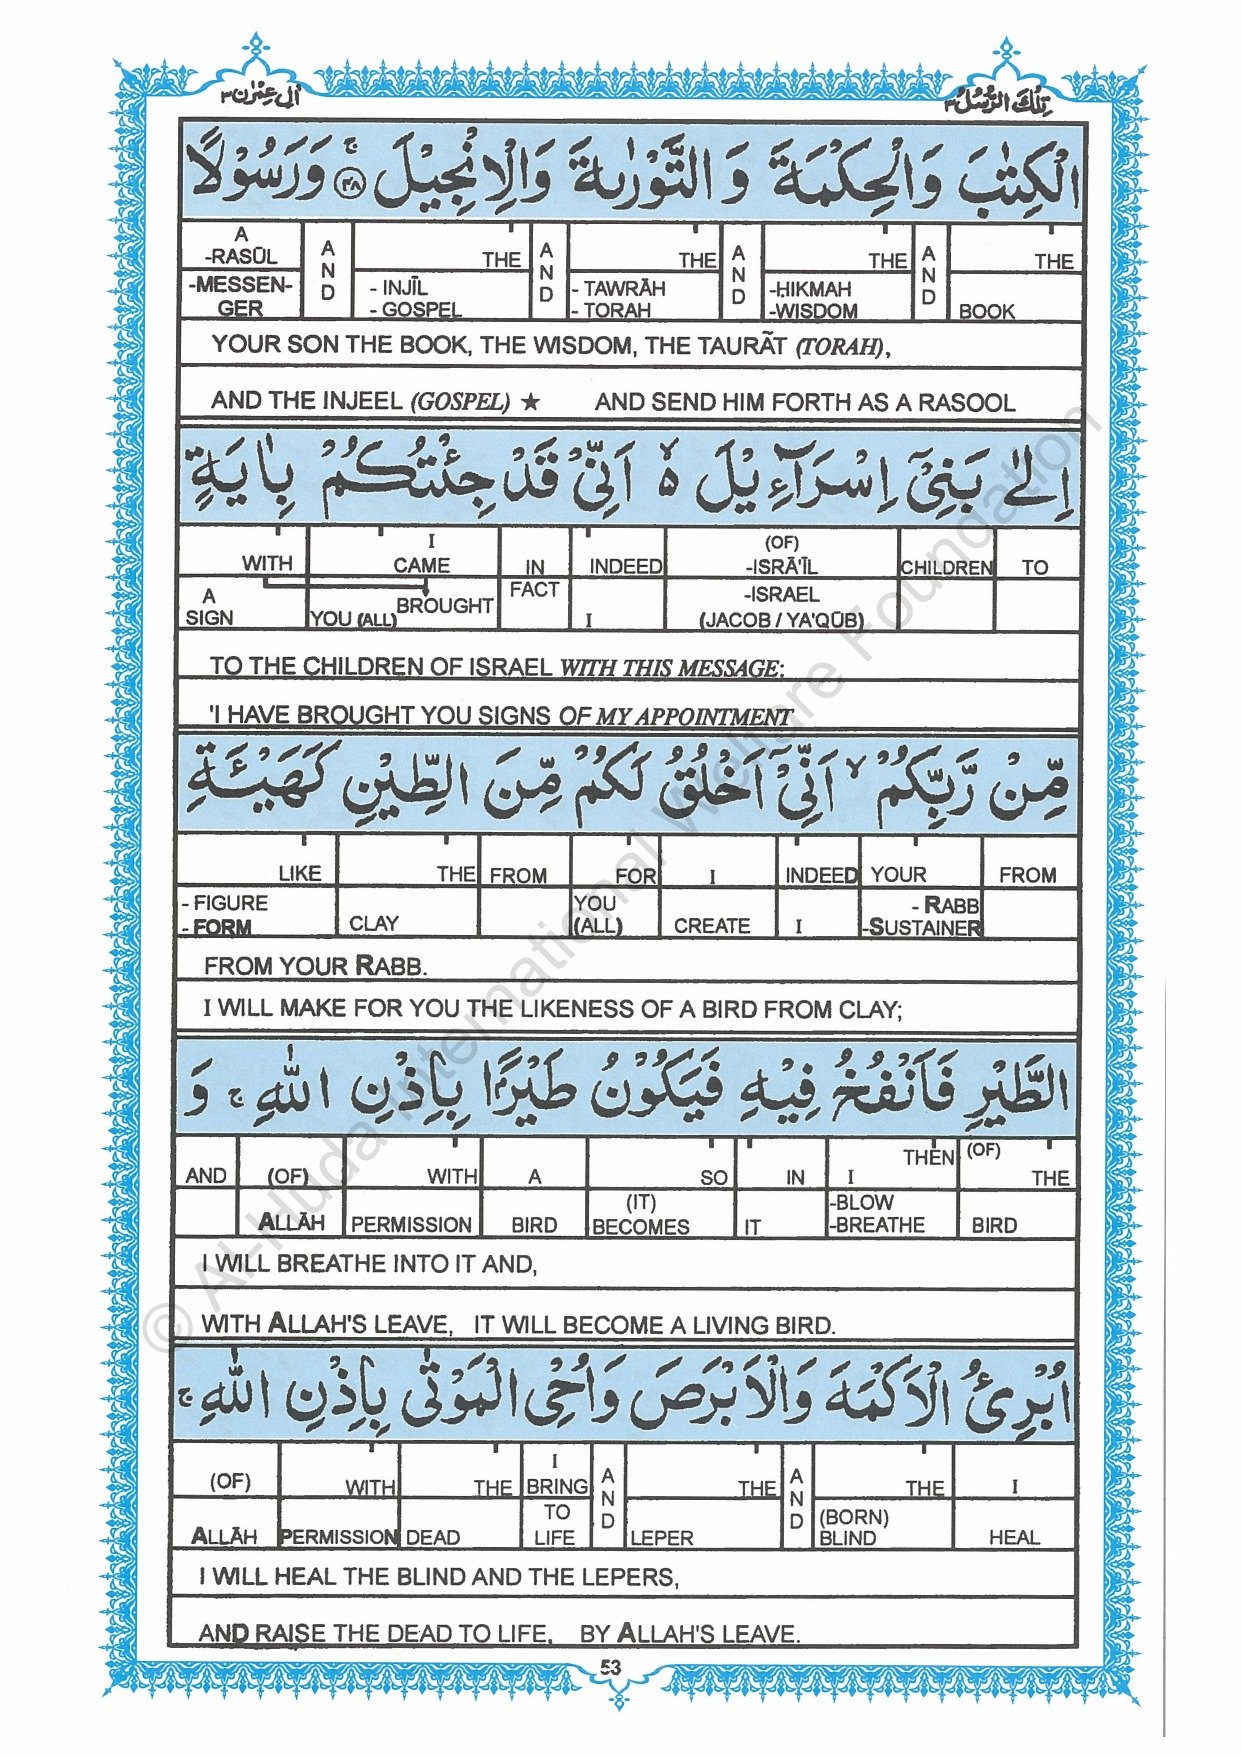 اٰلِ عِمْرٰن ٣
تِلْكَ الرُّسُلُ ٣
الْكِتٰبَ وَالْحِكْمَةَ وَالتَّوْرٰىةَ وَالْاِنْجِيْلَ ۚ ﴿٤٨﴾ وَرَسُوْلًا
A -RASŪL -MESSEN-GER | AND | THE - INJĪL - GOSPEL | AND | THE - TAWRĀH - TORAH | AND | THE -ḤIKMAH -WISDOM | AND | THE BOOK
YOUR SON THE BOOK, THE WISDOM, THE TAURÃT (TORAH),
AND THE INJEEL (GOSPEL) ★ AND SEND HIM FORTH AS A RASOOL
اِلٰى بَنِيْٓ اِسْرَآءِيْلَ ۙ اَنِّيْ قَدْ جِئْتُكُمْ بِاٰيَةٍ
WITH A SIGN | I CAME BROUGHT YOU (ALL) | IN FACT | INDEED I | (OF) -ISRĀ'ĪL -ISRAEL (JACOB / YA'QŪB) | CHILDREN | TO
TO THE CHILDREN OF ISRAEL WITH THIS MESSAGE:
'I HAVE BROUGHT YOU SIGNS OF MY APPOINTMENT
مِّنْ رَّبِّكُمْ ۙ اَنِّيْٓ اَخْلُقُ لَكُمْ مِّنَ الطِّيْنِ كَهَيْـَٔةِ
LIKE - FIGURE - FORM | THE CLAY | FROM | FOR YOU (ALL) | I CREATE | INDEED I | YOUR - RABB -SUSTAINER | FROM
FROM YOUR RABB.
I WILL MAKE FOR YOU THE LIKENESS OF A BIRD FROM CLAY;
الطَّيْرِ فَاَنْفُخُ فِيْهِ فَيَكُوْنُ طَيْرًا بِاِذْنِ اللّٰهِ ۚ وَ
AND | (OF) ALLĀH | WITH PERMISSION | A BIRD | SO (IT) BECOMES | IN IT | THEN I -BLOW -BREATHE | (OF) THE BIRD
I WILL BREATHE INTO IT AND,
WITH ALLAH'S LEAVE, IT WILL BECOME A LIVING BIRD.
اُبْرِئُ الْاَكْمَهَ وَالْاَبْرَصَ وَاُحْيِ الْمَوْتٰى بِاِذْنِ اللّٰهِ ۚ
(OF) ALLĀH | WITH PERMISSION | THE DEAD | I BRING TO LIFE | AND | THE LEPER | AND | THE (BORN) BLIND | I HEAL
I WILL HEAL THE BLIND AND THE LEPERS,
AND RAISE THE DEAD TO LIFE, BY ALLAH'S LEAVE.
53
© Al-Huda International Welfare Foundation